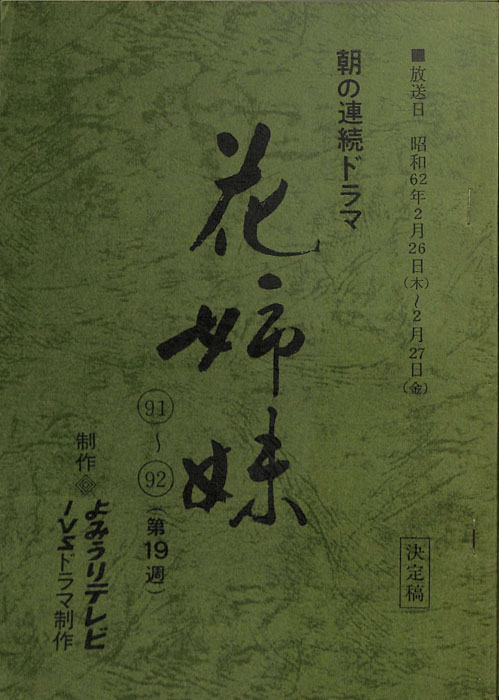 ■放送日 昭和62年2月26日(木)～2月27日(金)
決定稿
朝の連続ドラマ
花姉妹
91～92(第19週)
制作 よみうりテレビ
IVSドラマ制作